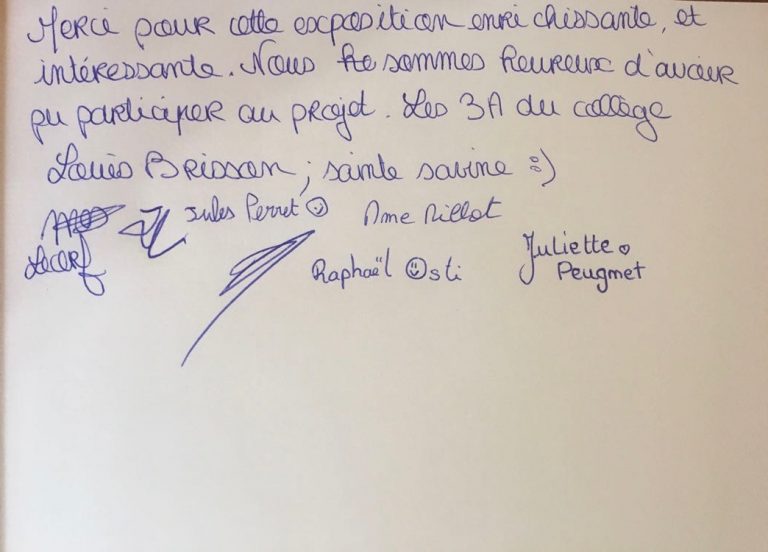 Merci pour cette exposition enrichissante, et
intéressante. Nous sommes heureux d'avoir
pu participer au projet. Les 3A du collège
Louis Brisson ; sainte savine :)
Jules Perret
Lecerf
Raphaël Osti
Juliette
Peugmet